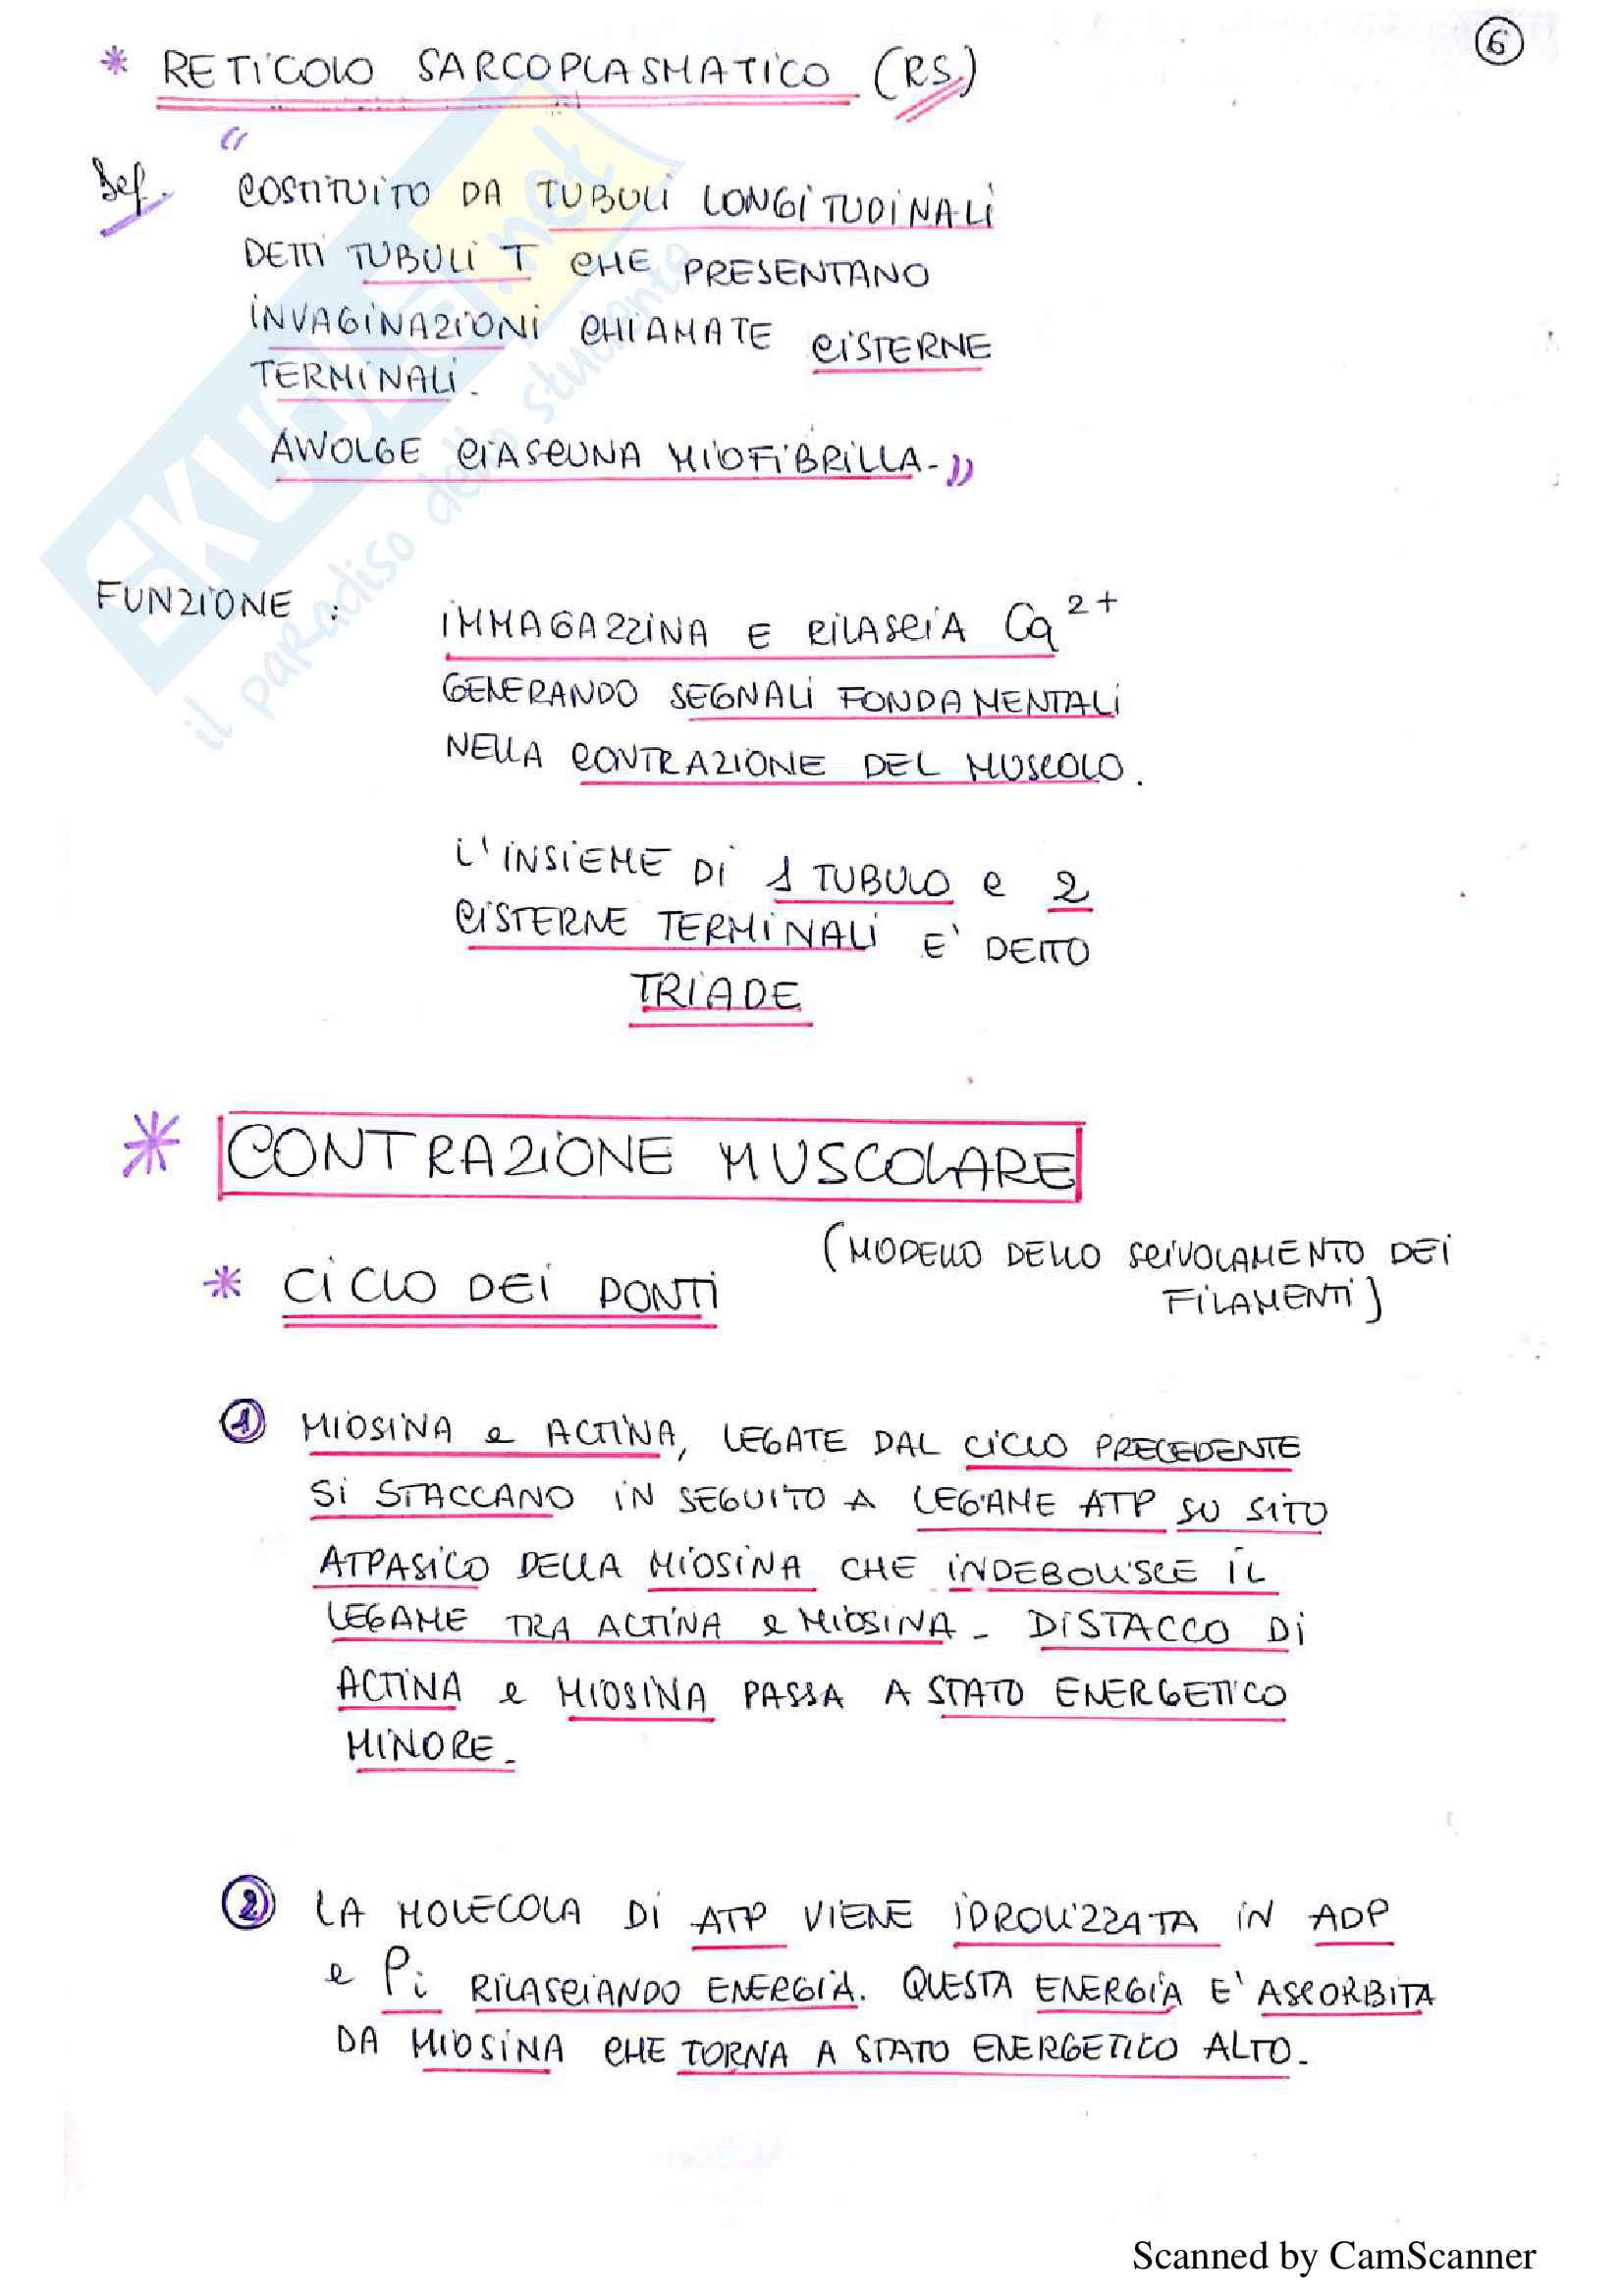 6
* RETICOLO SARCOPLASMATICO (RS)
"
Def. COSTITUITO DA TUBULI LONGITUDINALI
DETTI TUBULI T CHE PRESENTANO
INVAGINAZIONI CHIAMATE CISTERNE
TERMINALI.
AVVOLGE CIASCUNA MIOFIBRILLA. "
SKUOLA.net
il paradiso dello studente
FUNZIONE : IMMAGAZZINA E RILASCIA Ca2+
GENERANDO SEGNALI FONDAMENTALI
NELLA CONTRAZIONE DEL MUSCOLO.
L'INSIEME DI 1 TUBULO e 2
CISTERNE TERMINALI E' DETTO
TRIADE
* CONTRAZIONE MUSCOLARE
(MODELLO DELLO SCIVOLAMENTO DEI
FILAMENTI)
* CICLO DEI PONTI
1 MIOSINA e ACTINA, LEGATE DAL CICLO PRECEDENTE
SI STACCANO IN SEGUITO A LEGAME ATP SU SITO
ATPASICO DELLA MIOSINA CHE INDEBOLISCE IL
LEGAME TRA ACTINA e MIOSINA - DISTACCO DI
ACTINA e MIOSINA PASSA A STATO ENERGETICO
MINORE.
2 LA MOLECOLA DI ATP VIENE IDROLIZZATA IN ADP
e Pi RILASCIANDO ENERGIA. QUESTA ENERGIA E' ASCORBITA
DA MIOSINA CHE TORNA A STATO ENERGETICO ALTO.
Scanned by CamScanner